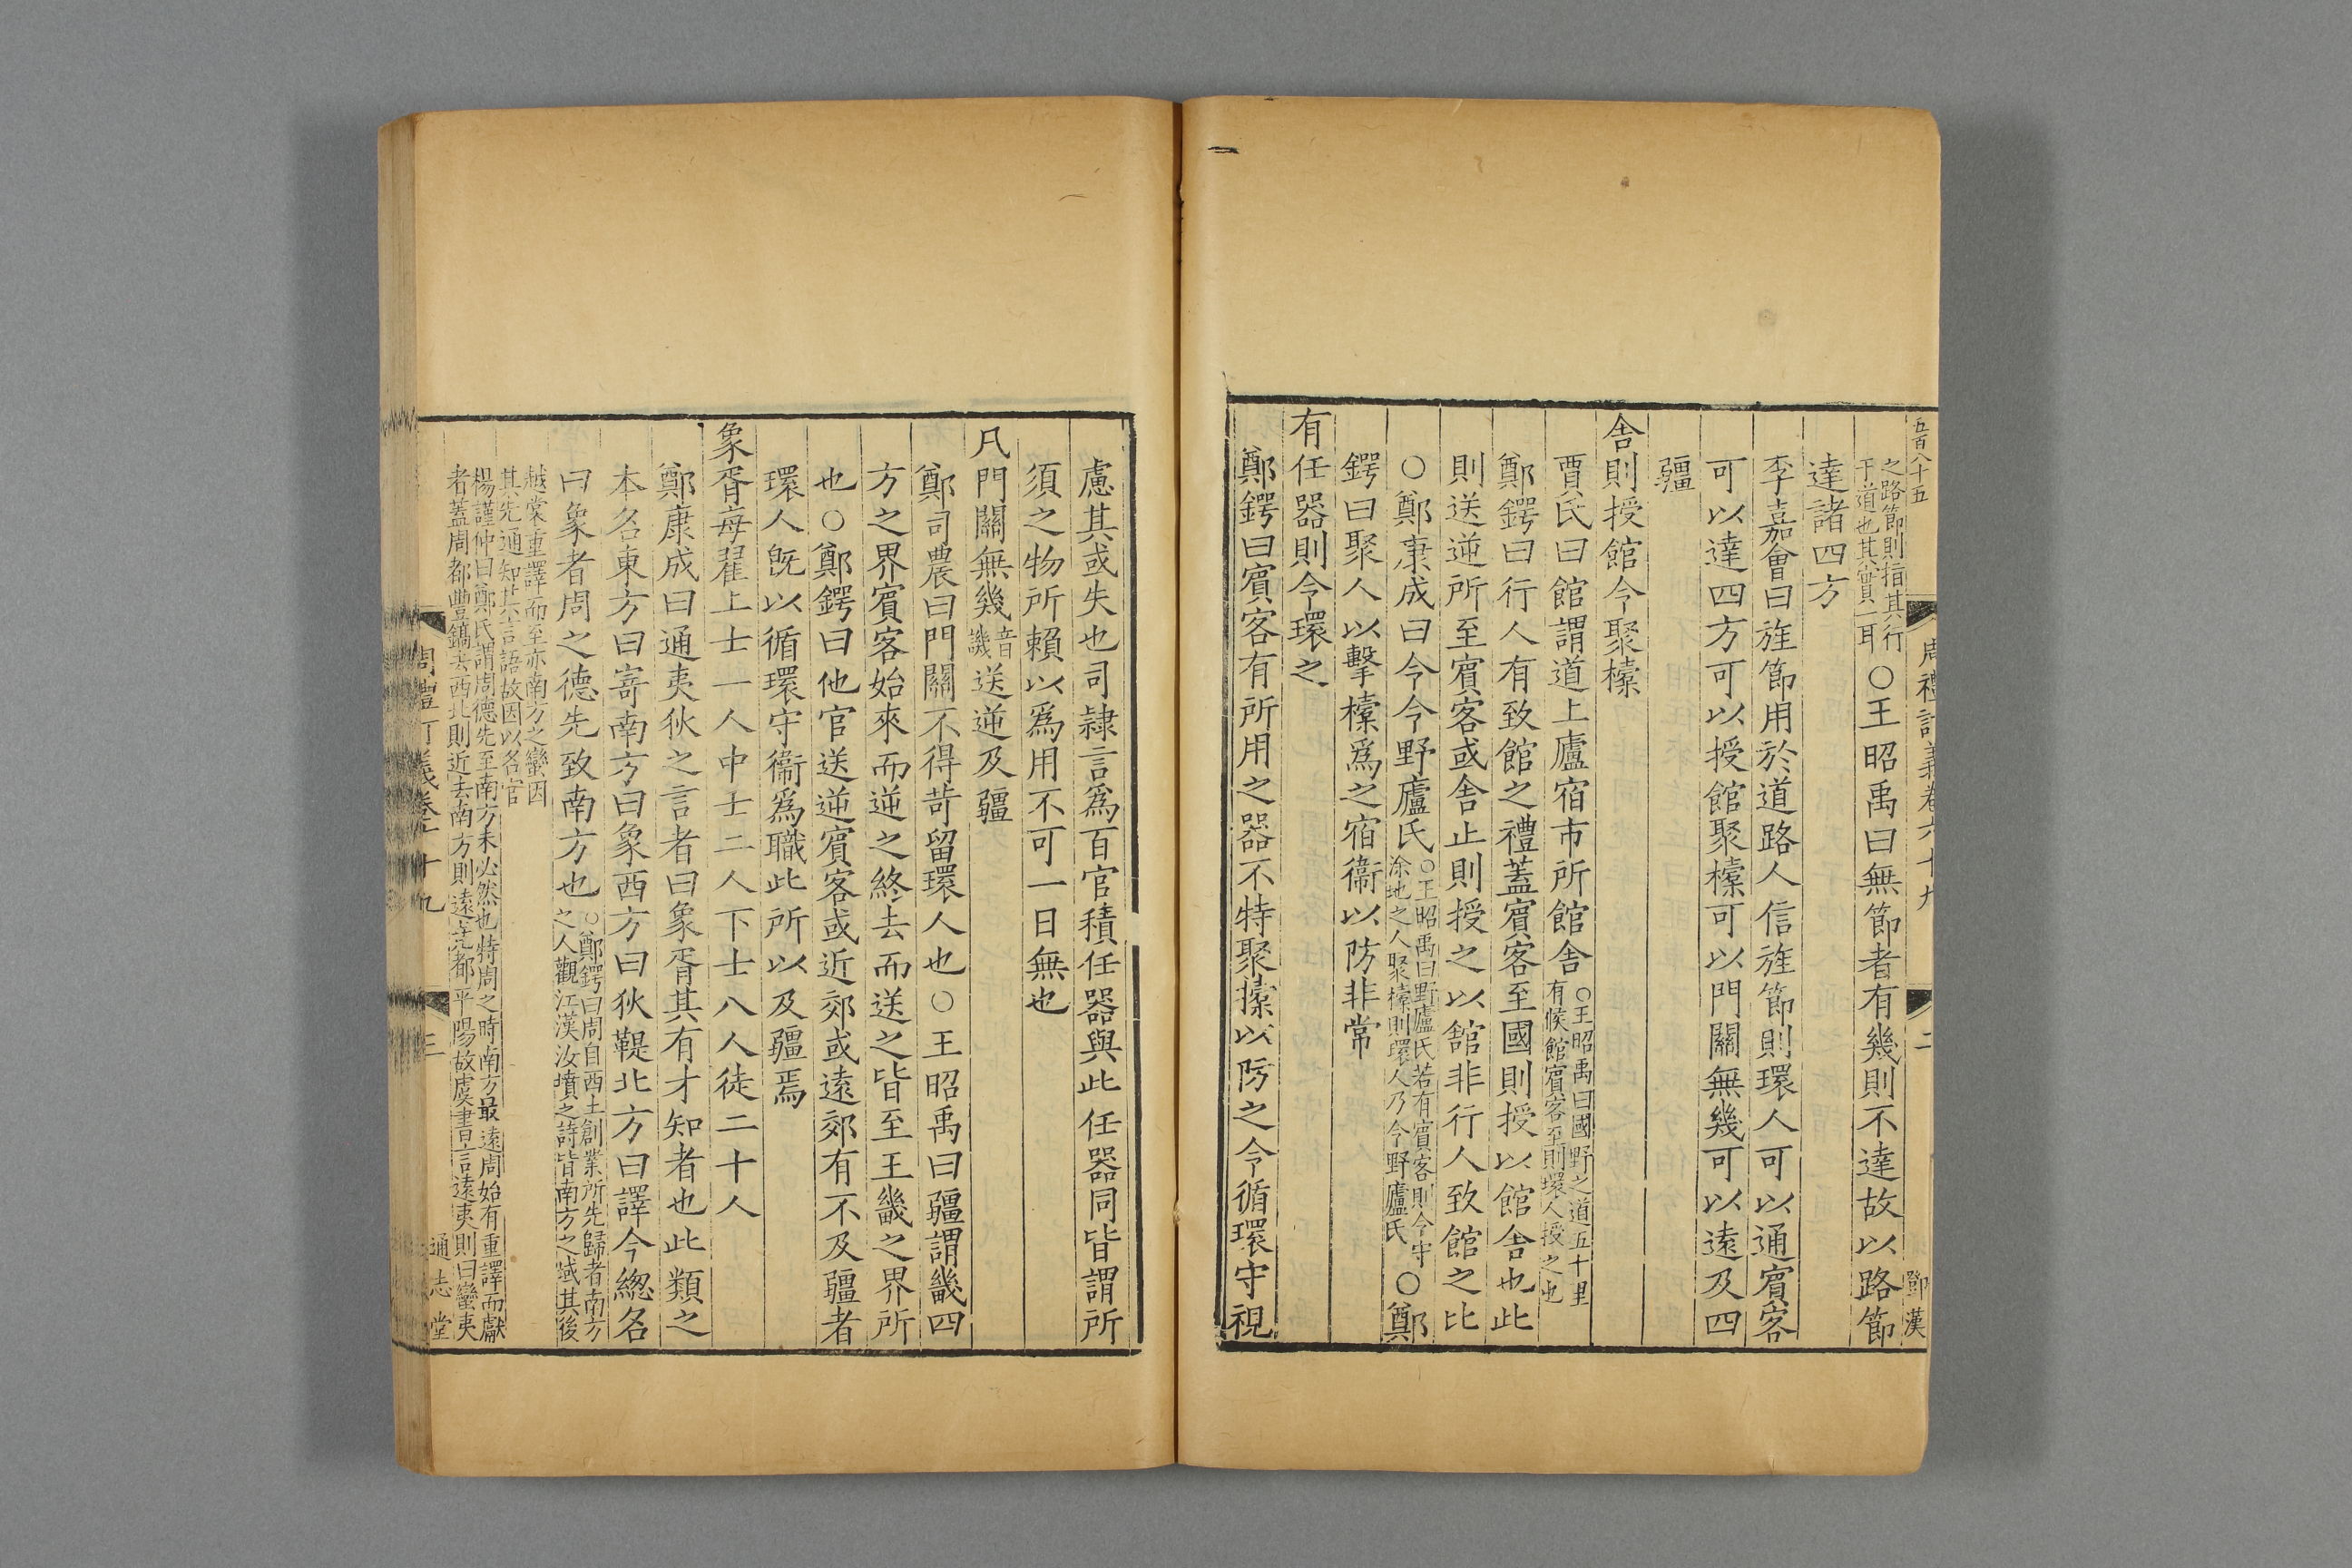 五百八十五
周禮訂義卷六十九
二
鄧漢
之路節則指其行
于道也其實一耳
○王昭禹曰無節者有幾則不達故以路節
達諸四方
李嘉會曰旌節用於道路人信旌節則環人可以通賓客
可以達四方可以授館聚㯓可以門關無幾可以遠及四
疆
舍則授館令聚㯓
賈氏曰館謂道上廬宿市所館舍
○王昭禹曰國野之道五十里
有候館賓客至則環人授之也
鄭鍔曰行人有致館之禮蓋賓客至國則授以館舍也此
則送逆所至賓客或舍止則授之以舘非行人致館之比
○鄭康成曰令令野廬氏
○王昭禹曰野廬氏若有賓客則令守
涂地之人聚㯓則環人乃令野廬氏
○鄭
鍔曰聚人以擊㯓爲之宿衞以防非常
有任器則令環之
鄭鍔曰賓客有所用之器不特聚㯓以防之令循環守視
慮其或失也司隷言爲百官積任器與此任器同皆謂所
須之物所賴以爲用不可一日無也
凡門關無幾
音
譏
送逆及疆
鄭司農曰門關不得苛留環人也○王昭禹曰疆謂畿四
方之界賓客始來而逆之終去而送之皆至王畿之界所
也○鄭鍔曰他官送逆賓客或近郊或遠郊有不及疆者
環人旣以循環守衞爲職此所以及疆焉
象胥每翟上士一人中士二人下士八人徒二十人
鄭康成曰通夷狄之言者曰象胥其有才知者也此類之
本名東方曰寄南方曰象西方曰狄鞮北方曰譯今總名
曰象者周之德先致南方也
○鄭鍔曰周自西土創業所先歸者南方
之人觀江漢汝墳之詩皆南方之域其後
越裳重譯而至亦南方之蠻因
其先通知其言語故因以名官
楊謹仲曰鄭氏謂周德先至南方未必然也特周之時南方最遠周始有重譯而獻
者蓋周都豐鎬去西北則近去南方則遠堯都平陽故虞書言遠夷則曰蠻夷
周禮訂義卷六十九
三
通志堂